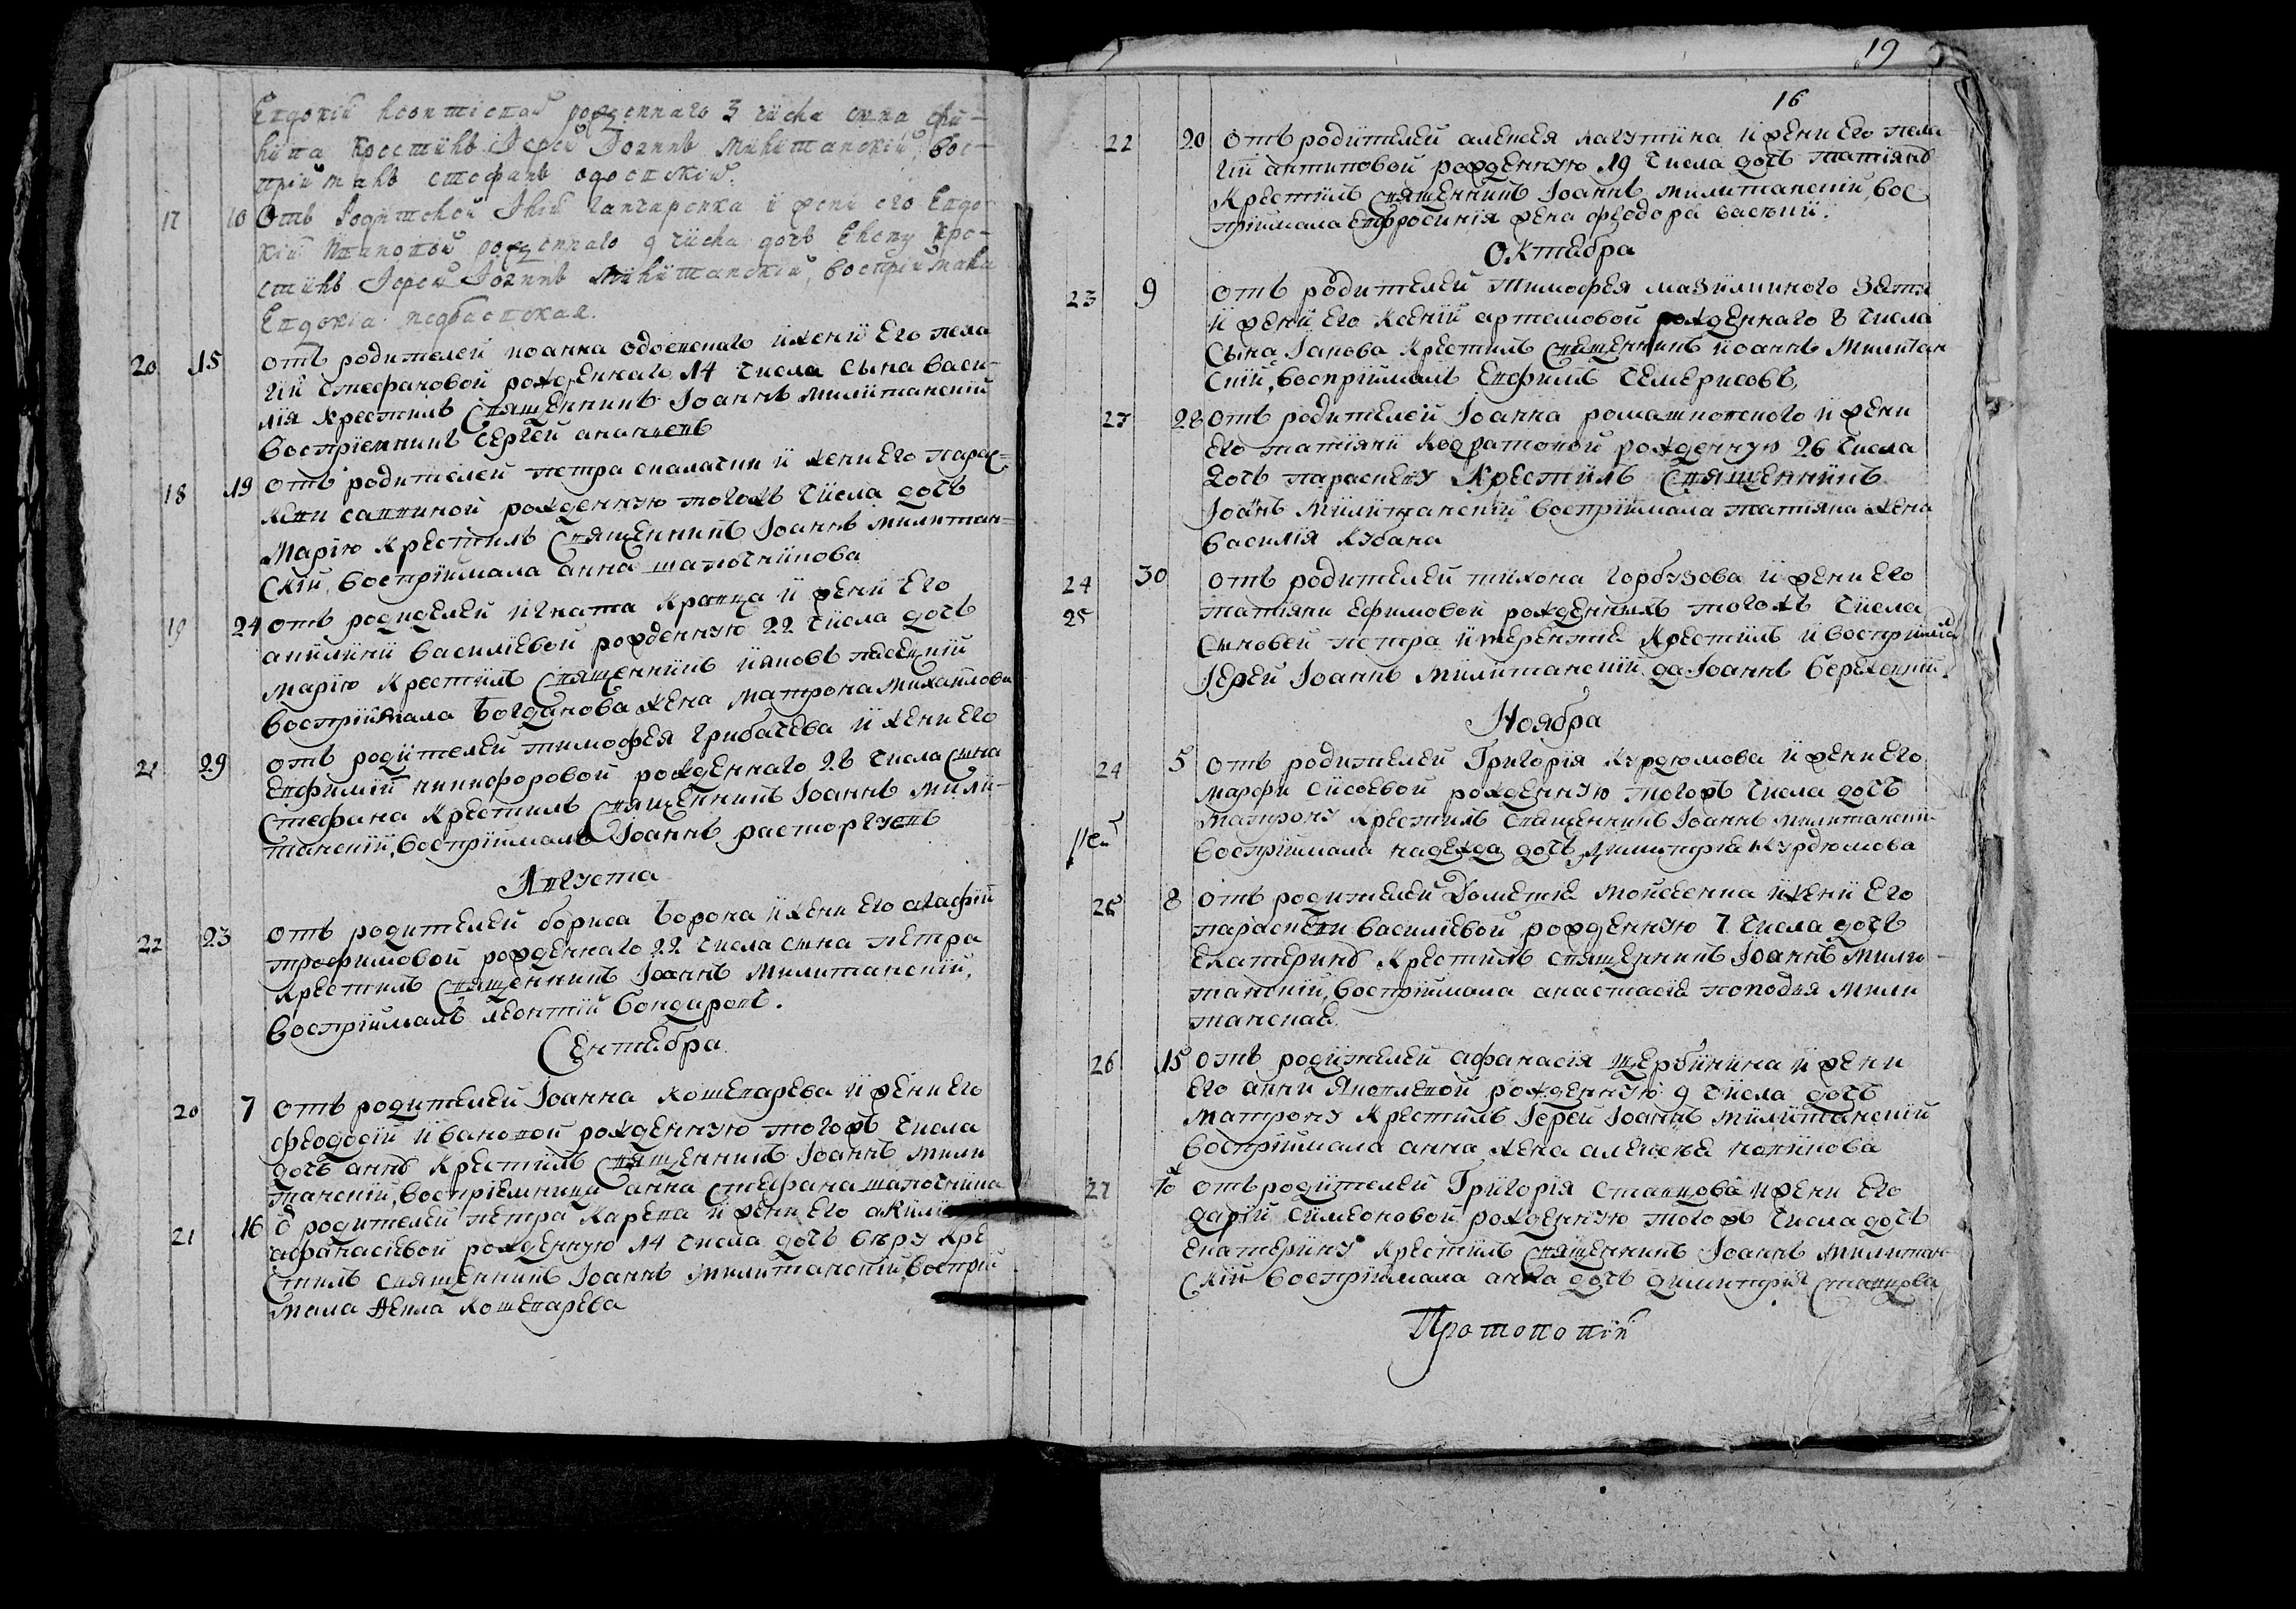 Евдокіи Леонтіевой рожденнаго 3 числа сына Фи-
липа крестилъ Іерей Іоаннъ Милитанскій, вос-
пріймалъ Стефанъ Одоевскій.
17 10 Отъ родителей Іліи Ганчаренка и жени его Евдо-
кіи рожденнаго 9 числа дочь Елену кре-
стилъ Іерей Іоаннъ Милитанскій, воспріймала
Евдокіа
20 15 отъ родителей иоанна одоевскаго и жени его пела
гіи стефановой рожденнаго 14 числа сына васи-
лія крестилъ священникъ Іоаннъ милитанскій
воспріемникъ сергей ананьевъ
18 19 отъ родителей петра скалагин и жени его парас-
кеви саввиной рожденную тогожъ числа дочь
Марію крестилъ священникъ Іоаннъ милитан-
скій, воспріймала анна шапочникова
19 24 отъ родидѣлей игната кравца и жени его
акилини василіевой рожденную 22 числа дочь
марію крестилъ священникъ ияковъ
воспріймала богданова жена матрона михайлова
21 29 отъ родителей тимофея грибачева и жени его
евфиміи никифоровой рожденнаго 28 числа сына
стефана крестилъ священникъ Іоаннъ мили-
танскій, воспріймалъ Іоаннъ расторгуевъ
Августа
22 23 отъ родителей бориса борона и жени его агафіи
трофимовой рожденнаго 22 числа сына петра
крестилъ священникъ Іоаннъ милитанскій,
воспріймалъ леонтій бондиревъ.
Сентебра
20 7 отъ родителей Іоанна кошеварева и жени его
феодосіи ивановой рожденную тогожъ числа
дочь анну крестилъ священникъ Іоаннъ мили
танскій, воспріемница анна стефана шапочника
21 16 ѿ родителей петра карева и жени его акили
афанасіевой рожденную 14 числа дочь вѣру кре
стилъ священникъ Іоаннъ милитанскій, воспрій
мала кошеварева
19
16
22 20 отъ родителей алексея лагутина и жени его пела
гіи антиповой рожденную 19 числа дочь татіяну
крестилъ священникъ Іоаннъ милитанскій, вос
пріймала евфросинія жена феодора
Октебра
23 9 отъ родителей тимофея мазилиного зятя
и жени его ксеніи артемовой рожденнаго 8 числа
сына Іакова крестилъ священникъ иоаннъ милитан
скій, воспріймалъ евфимъ чемерисовъ,
27 28 отъ родителей Іоанна ромашновского и жени
его татіяни кодратовой рожденную 26 числа
дочь параскеву крестилъ священникъ
Іоанъ милитанскій воспріймала татіяна жена
василія кубана
24 30 отъ родителей тихона горбузова и жени его
25 татіяни ефимовой рожденныхъ тогожъ числа
сыновей петра и терентіе крестилъ и воспріймалъ
Іерей Іоаннъ милитанскій да Іоаннъ бережецкій.
Ноября
24 5 отъ родителей Григорія курдюмова и жени его
марфи сисоевой рожденную тогожъ числа дочь
матрону крестилъ священникъ Іоаннъ милитанскій
воспріймала надежда дочь димитріа курдюмова
25 8 отъ родителей Дометіе мойсеенка и жени его
параскеви василіевой рожденную 7 числа дочь
екатерину крестилъ священникъ Іоаннъ мили-
танскій, воспріймала анастасіе попадья мили
танскае.
26 15 отъ родителей афанасія щербинина и жени
его анни яковлевой рожденную 9 числа дочь
матрону крестилъ Іерей Іоаннъ милитанскій
воспріймала анна жена алексѣе новикова
27 отъ родителей Григорія ставцова и жени его
даріи симеоновой рожденную тогожъ числа дочь
екатерину крестилъ священникъ Іоаннъ милитан
скій воспріймала анна дочь димитріе ставцова
Протопопій